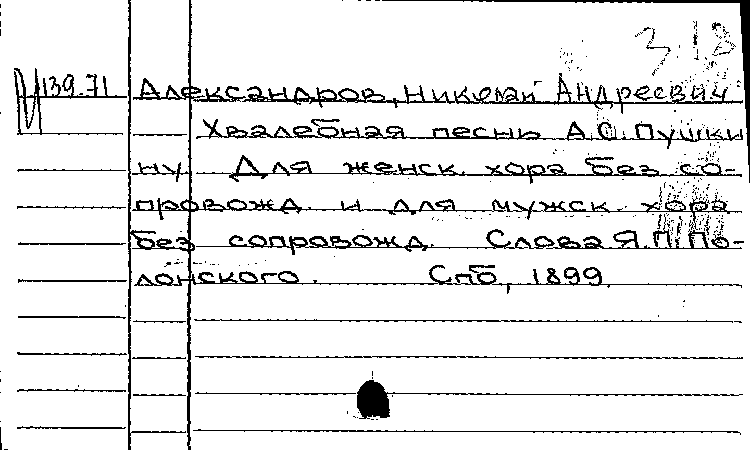 3.18
139.71 Александров, Николай Андреевич
Хвалебная песнь А.С. Пушки
ну. Для женск. хора без со-
провожд. и для мужск. хора
без сопровожд. Слова Я.П. По-
лонского. Спб, 1899.